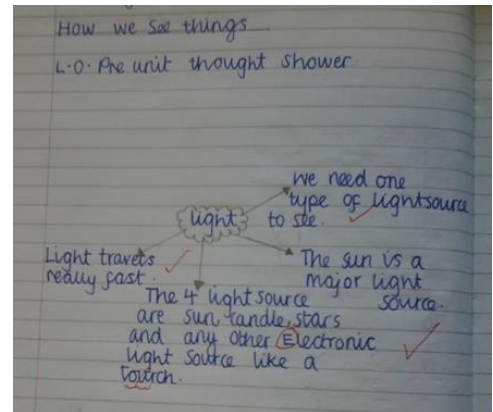 How we see things
L.O. Pre unit thought shower.
we need one
type of lightsource
to see.
light
Light travels
really fast.
The sun is a
major light
source.
The 4 light source
are sun, candle, stars
and any other Electronic
light source like a
tourch.